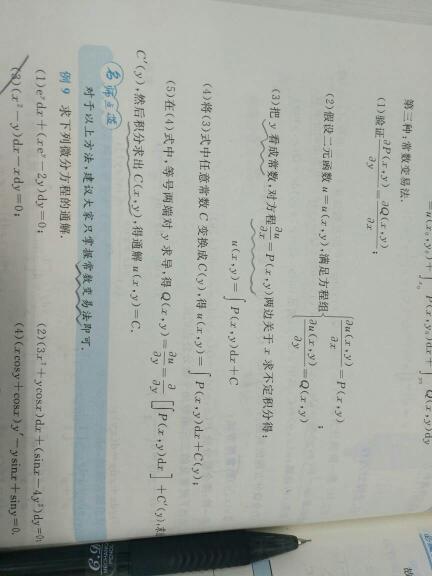 =u(x₀,y₀)+∫ P(x,y₀)dx+∫ Q(x,y)dy
第三种:常数变易法.
(1)验证∂P(x,y)/∂y=∂Q(x,y)/∂x;
(2)假设二元函数 u=u(x,y),满足方程组{∂u(x,y)/∂x=P(x,y) ∂u(x,y)/∂y=Q(x,y);
(3)把 y 看成常数,对方程∂u/∂x=P(x,y)两边关于 x 求不定积分得:
u(x,y)=∫P(x,y)dx+C
(4)将(3)式中任意常数 C 变换成 C(y),得 u(x,y)=∫P(x,y)dx+C(y);
(5)在(4)式中,等号两端对 y 求导,得 Q(x,y)=∂u/∂y=∂/∂y[∫P(x,y)dx]+C′(y),求
C′(y),然后积分求出 C(x,y),得通解 u(x,y)=C.
名师点道
对于以上方法,建议大家只掌握常数变易法即可.
例 9 求下列微分方程的通解.
(1)eʸdx+(xeʸ−2y)dy=0; (2)(3x²+ycosx)dx+(sinx−4y³)dy=0;
(3)(x²−y)dx−xdy=0; (4)(xcosy+cosx)y′−ysinx+siny=0.